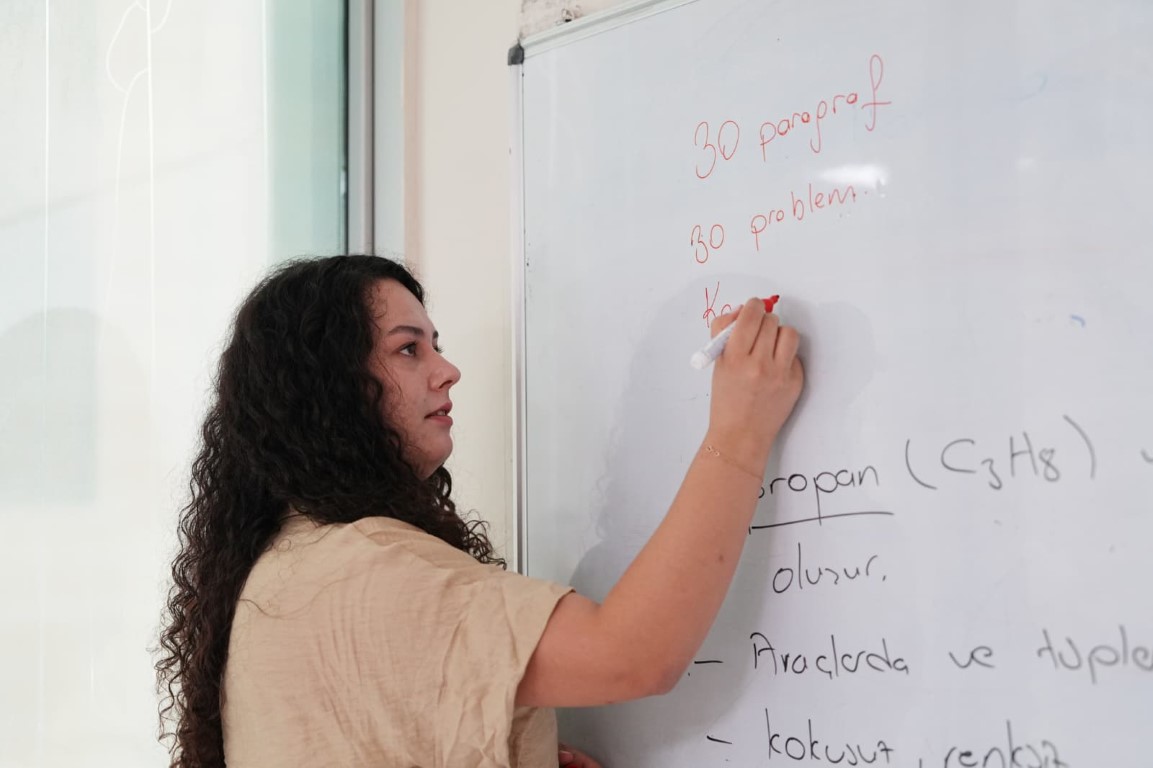 30 paragraf
30 problem
Ka
propan (C3H8)
oluşur.
- Araçlarda ve
- kokusuz, renksiz